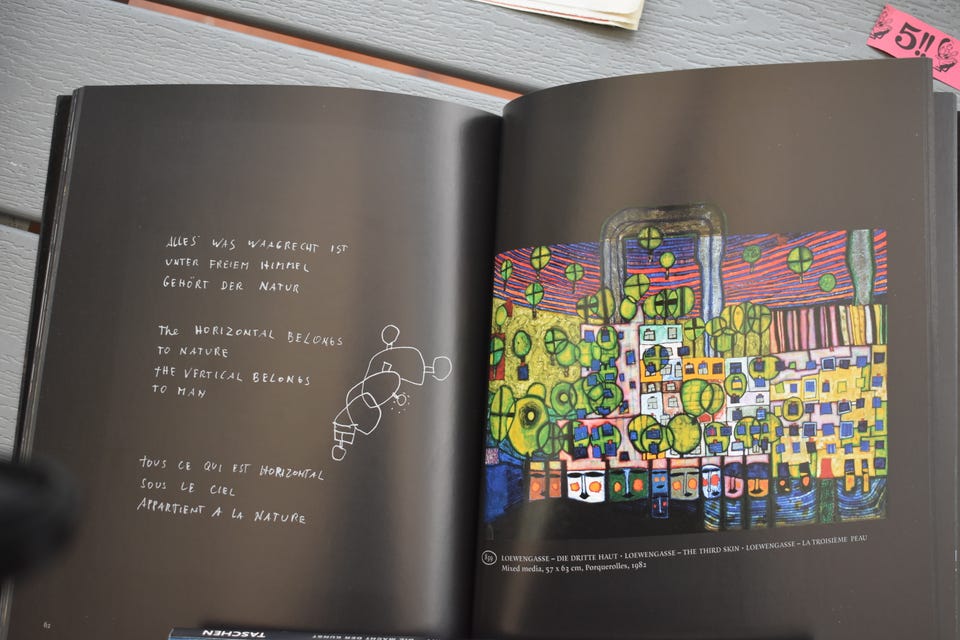 5!!
ALLES WAS WAAGRECHT IST
UNTER FREIEM HIMMEL
GEHÖRT DER NATUR
The HORIZONTAL BELONGS
TO NATURE
tHE VERTICAL BELONGS
TO MAN
tOUS CE QUI EST HORIZONTAL
SOUS LE CIEL
APPARTIENT A LA NATURE
62
859 LOEWENGASSE – DIE DRITTE HAUT · LOEWENGASSE – THE THIRD SKIN · LOEWENGASSE – LA TROISIÈME PEAU
Mixed media, 57 x 63 cm, Porquerolles, 1982
TASCHEN
DIE MACHT DER KUNST